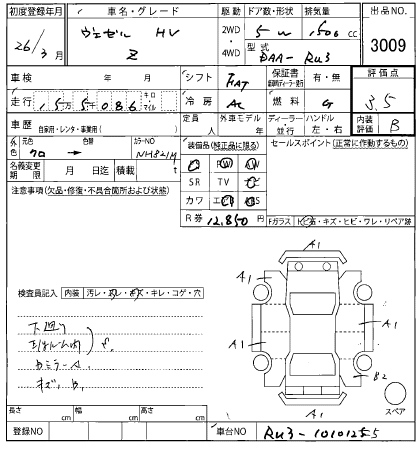 初度登録年月 車名・グレード 駆動 ドア数・形状 排気量 出品NO.
26/3月 ヴェゼル HV Z 2WD・4WD 5 W 1500 cc 3009
型式 DAA-RU3
車検 年 月 シフト FAT 保証書 有・無 評価点 3.5
走行 155086 キロ・マイル 冷房 AC 燃料 G
車歴 自家用・レンタ・事業用( ) 定員 人 外車モデル 年 ディーラー・並行 ハンドル 左・右 内装評価 B
外色 元色 クロ → 色替 カラーNO NH821M 装備品(純正品に限る) セールスポイント(正常に動作するもの)
名義変更期限 月 日迄 積載 t PS PW AW
注意事項(欠品・修復・不具合箇所および状態) SR TV
カワ
R券 12,850円 Fガラス キズ・キズ・ヒビ・ワレ・リペア跡
A1
A1 A1
検査員記入 内装 汚レ・スレ・キズ・キレ・コゲ・穴
下廻り
A1 A1
カミラーA
キズ、B,
B2
A1
スペア
長さ cm 幅 cm 高さ cm
登録NO 車台NO RU3-10101255